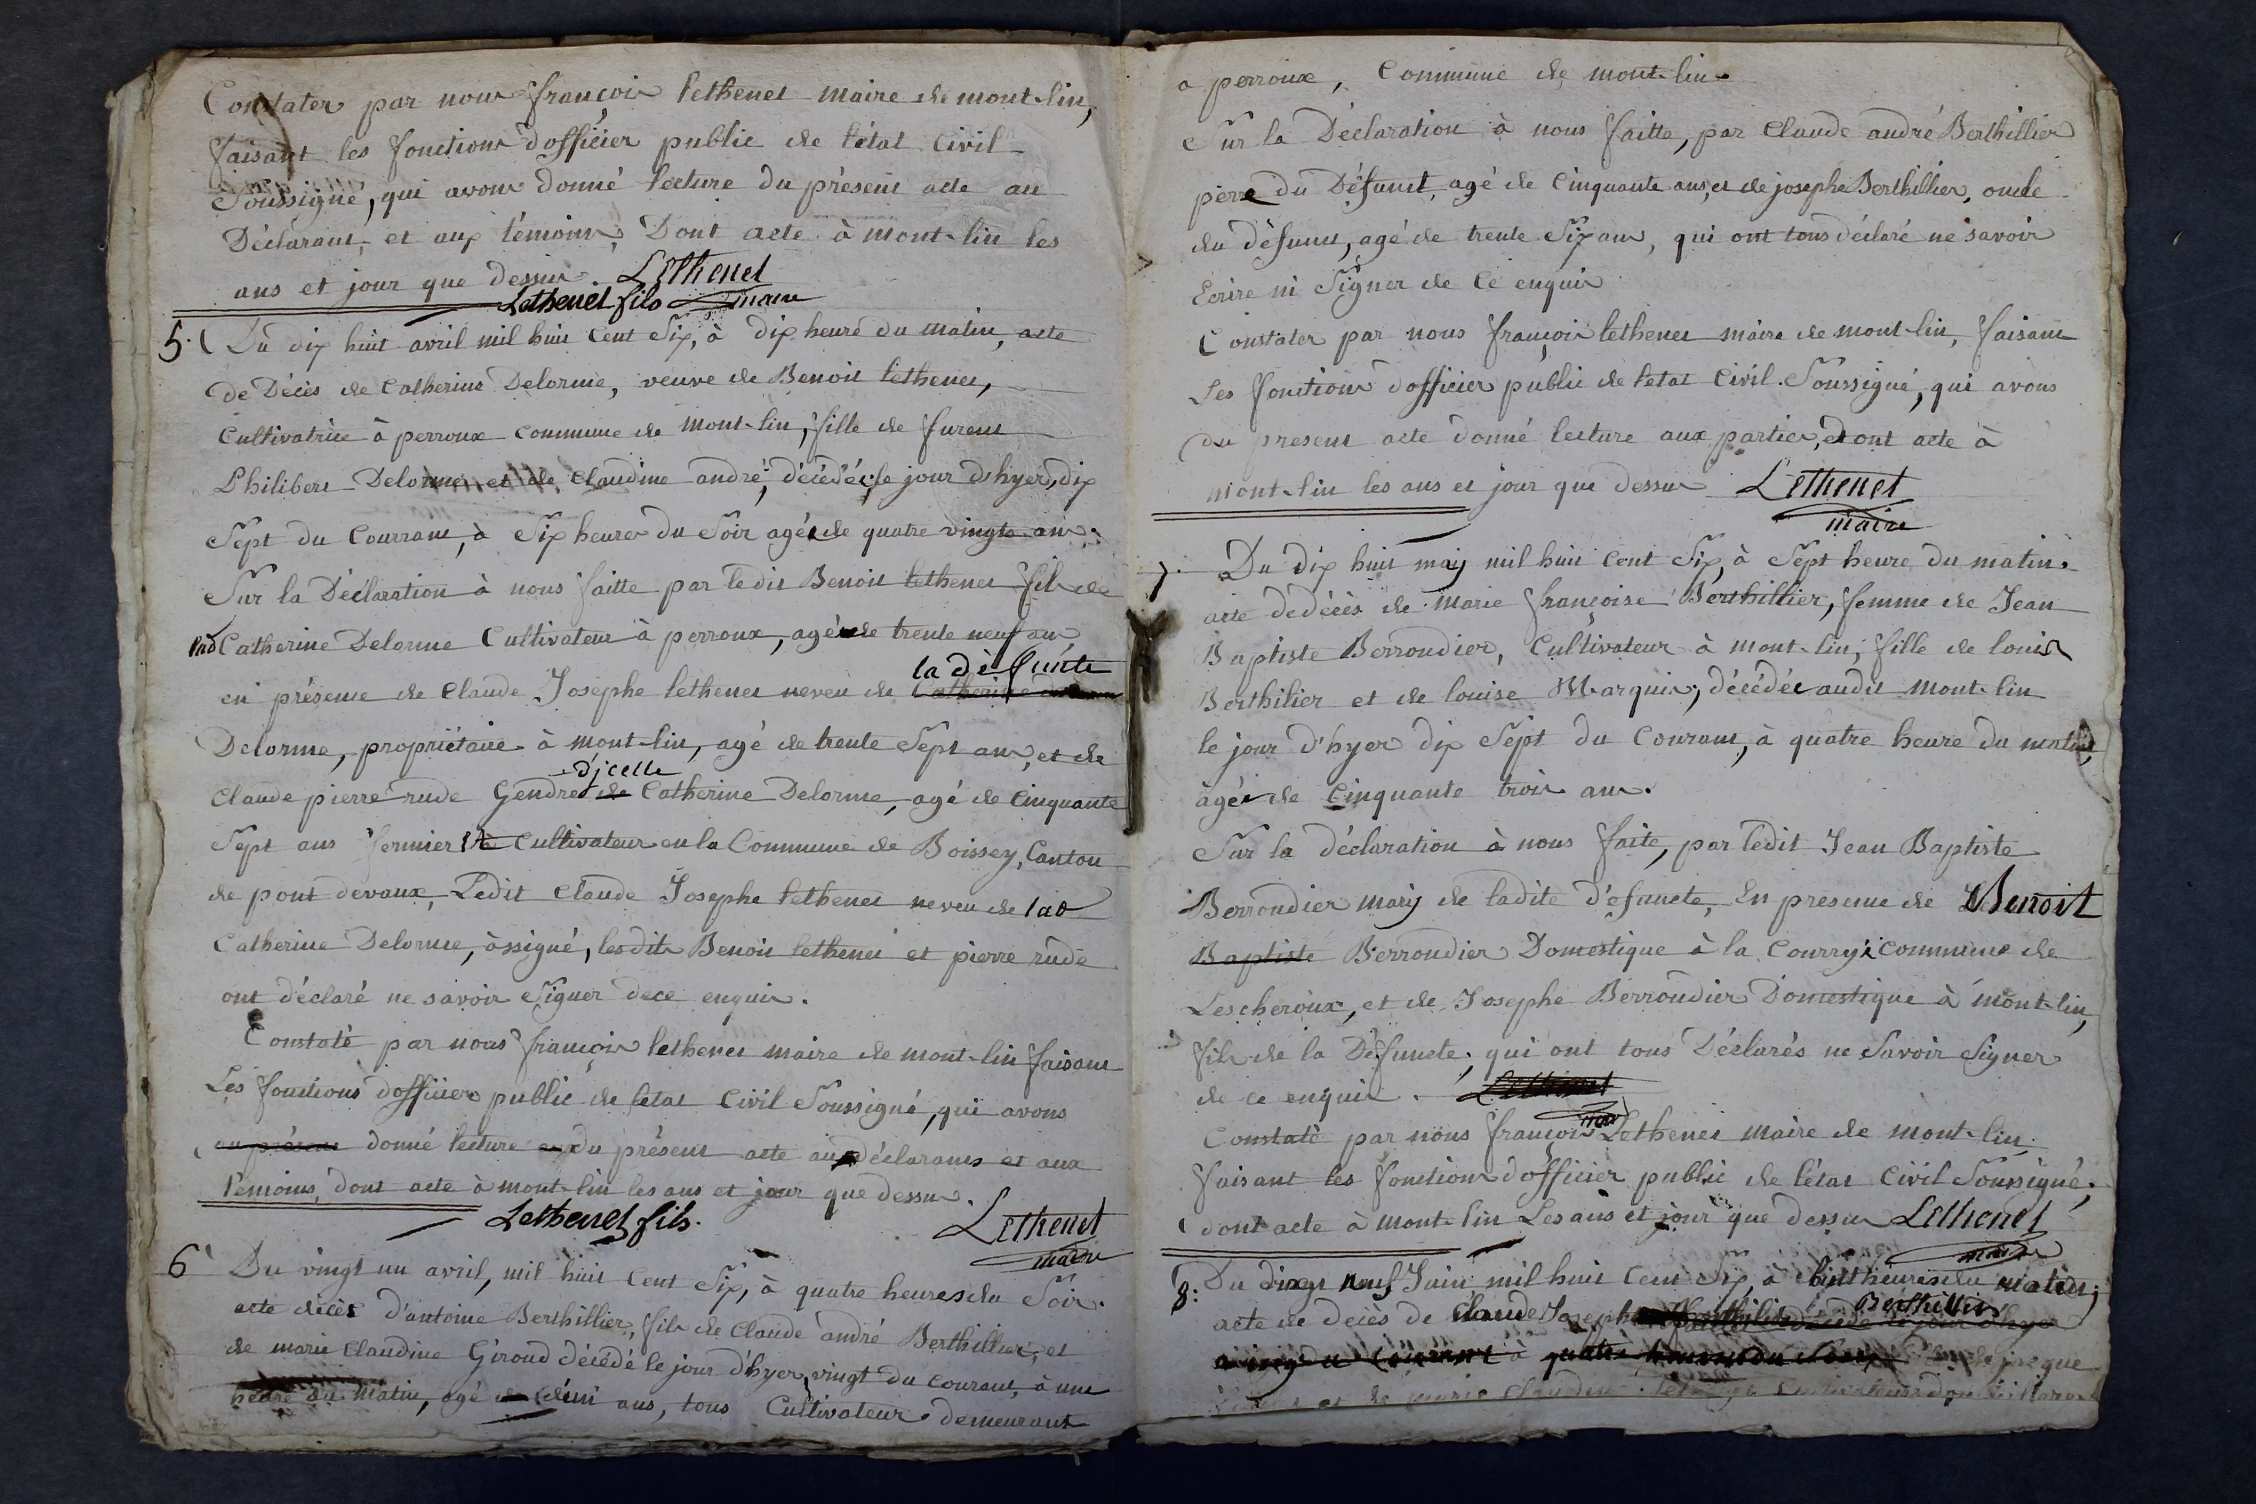 Constater par nous françois Lethenet maire de mont-lin,
faisant les fonctions d'officier public de l'état Civil
Soussigné, qui avons donné lecture du présent acte au
Déclarant, et aux témoins, Dont acte à mont-lin les
ans et jour que dessus. Lethenet
Lethenet fils maire
5. Du dix huit avril mil huit cent Six, à dix heure du matin, acte
de Décès de Catherine Delorme, veuve de Benoit Lethenet,
Cultivatrice à perroux commune de mont-lin, fille de furent
Philibert Delorme et de Claudine andré, décédée le jour d'hyer, dix
Sept du Courrant, à Six heures du Soir agée de quatre vingts ans.
Sur la Déclaration à nous faitte par ledit Benoit Lethenet fils de
lad Catherine Delorme Cultivateur à perroux, agé de trente neuf ans
la défunte
en présence de Claude Josephe Lethenet neveu de Catherine
Delorme, propriétaire à mont-lin, agé de trente Sept ans, et de
d'jcelle
Claude pierre rude Gendre de Catherine Delorme, agé de Cinquante
Sept ans fermier Cultivateur en la Commune de Boissey, Canton
de pont devaux, Ledit Claude Josephe Lethenet neveu de lad
Catherine Delorme, à signé, lesdits Benoit Lethenet et pierre rude
ont déclaré ne savoir Signer de ce enquis.
Constaté par nous françois Lethenet maire de mont-lin faisant
Les fonctions d'officier public de l'état Civil Soussigné, qui avons
au présent donné lecture du présent acte aux déclarants et aux
témoins, dont acte à mont-lin les ans et jour que dessus.
Lethenet fils. Lethenet
maire
6 Du vingt un avril, mil huit Cent Six, à quatre heures du Soir.
acte décès d'antoine Berthillier, fils de Claude andré Berthillier, et
de marie Claudine Giroud décédé le jour d'hyer, vingt du courant, à une
heure du matin, agé de ans, tous Cultivateur demeurant
a perroux, Commune de mont-lin.
Sur la Déclaration à nous faitte, par Claude andré Berthillier
pere du Défunct, agé de Cinquante ans, et de josephe Berthillier, oncle
du défunct, agé de trente Six ans, qui ont tous déclaré ne savoir
Ecrire ni Signer de Ce enquis
Constater par nous françois Lethenet maire de mont-lin, faisant
Les fonctions d'officier public de l'état Civil Soussigné, qui avons
du present acte donné lecture aux parties, dont acte à
mont-lin les ans et jour que dessus Lethenet
maire
7. Du dix huit may mil huit cent Six, à Sept heure du matin.
acte de décès de Marie françoise Berthillier, femme de Jean
Baptiste Berroudier, Cultivateur à mont-lin, fille de louis
Berthilier et de louise Marquis, décédée audit mont-lin
le jour d'hyer dix Sept du Courant, à quatre heure du matin,
agée de Cinquante trois ans.
Sur la déclaration à nous faite, par ledit Jean Baptiste
Berroudier mary de ladite défuncte, En presence de Benoit
Baptiste Berroudier Domestique à la Courry Commune de
Lescheroux, et de Josephe Berroudier Domestique à mont-lin,
fils de la Défuncte, qui ont tous Déclarés ne Savoir Signer
de ce enquis. Lethenet
Constaté par nous françois Lethenet maire de mont-lin.
faisant les fonctions d'officier public de l'état Civil Soussigné,
dont acte à mont-lin Les ans et jour que dessus Lethenet
maire
8: Du neuf Juin mil huit Cent Six, à huit heures du matin,
Berthillier
acte de décès de Claude Joseph décédé le jour d'hyer
du Courant à quatre
et de marie Claudine